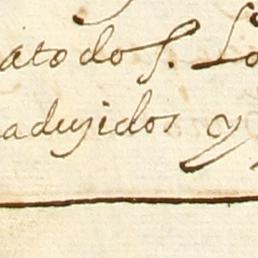 atodos. Lo
aduzidos y